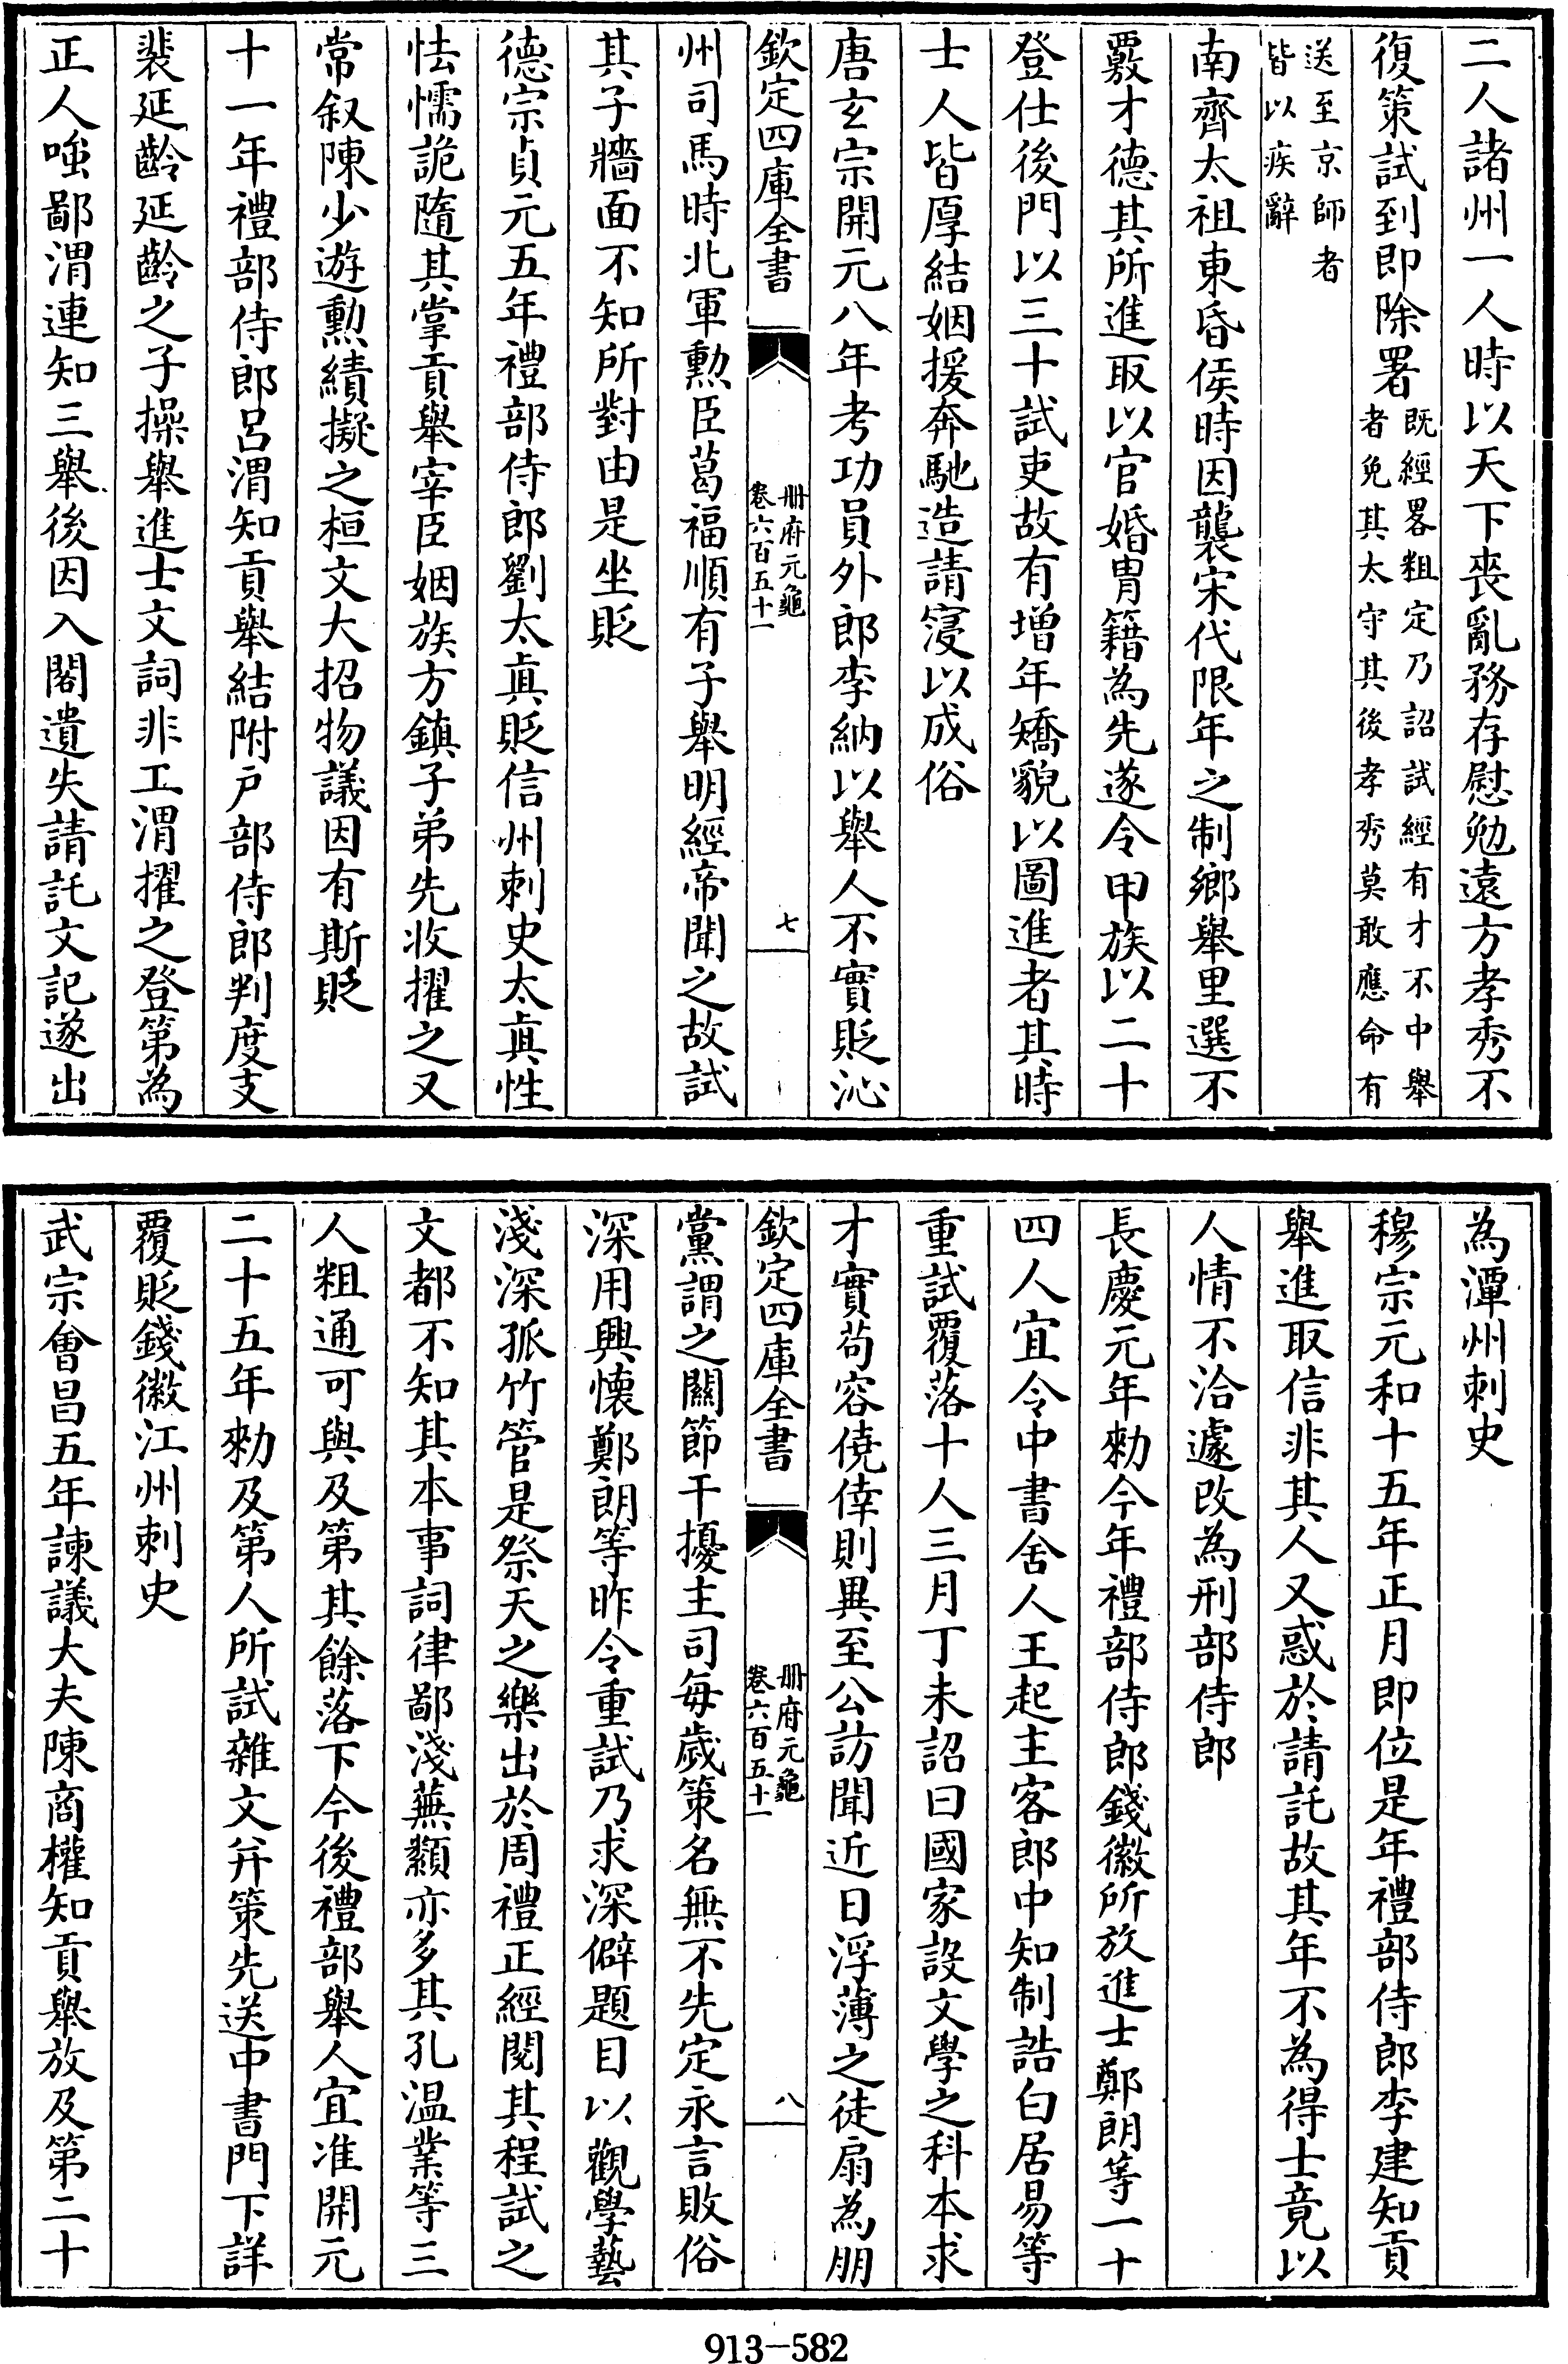 二人諸州一人時以天下喪亂務存慰勉遠方孝秀不
復策試到即除署既經畧粗定乃詔試經有才不中舉
者免其太守其後孝秀莫敢應命有
送至京師者
皆以疾辭
南齊太祖東昏侯時因襲宋代限年之制鄉舉里選不
覈才德其所進取以官婚胄籍為先遂令甲族以二十
登仕後門以三十試吏故有增年矯貌以圖進者其時
士人皆厚結姻援奔馳造請寖以成俗
唐玄宗開元八年考功員外郎李納以舉人不實貶沁
欽定四庫全書
冊府元龜
卷六百五十一
七
州司馬時北軍勲臣葛福順有子舉明經帝聞之故試
其子牆面不知所對由是坐貶
德宗貞元五年禮部侍郎劉太真貶信州刺史太真性
怯懦詭隨其掌貢舉宰臣姻族方鎮子弟先收擢之又
常叙陳少遊勲績擬之桓文大招物議因有斯貶
十一年禮部侍郎呂渭知貢舉結附户部侍郎判度支
裴延齡延齡之子操舉進士文詞非工渭擢之登第為
正人嗤鄙渭連知三舉後因入閣遺失請託文記遂出
為潭州刺史
穆宗元和十五年正月即位是年禮部侍郎李建知貢
舉進取信非其人又惑於請託故其年不為得士竟以
人情不洽遽改為刑部侍郎
長慶元年勑今年禮部侍郎錢徽所放進士鄭朗等一十
四人宜令中書舍人王起主客郎中知制誥白居易等
重試覆落十人三月丁未詔曰國家設文學之科本求
才實苟容僥倖則異至公訪聞近日浮薄之徒扇為朋
欽定四庫全書
冊府元龜
卷六百五十一
八
黨謂之關節干擾主司每歲策名無不先定永言敗俗
深用興懷鄭朗等昨令重試乃求深僻題目以觀學藝
淺深孤竹管是祭天之樂出於周禮正經閱其程試之
文都不知其本事詞律鄙淺蕪纇亦多其孔溫業等三
人粗通可與及第其餘落下今後禮部舉人宜准開元
二十五年勑及第人所試雜文并策先送中書門下詳
覆貶錢徽江州刺史
武宗會昌五年諫議大夫陳商權知貢舉放及第二十
913-582